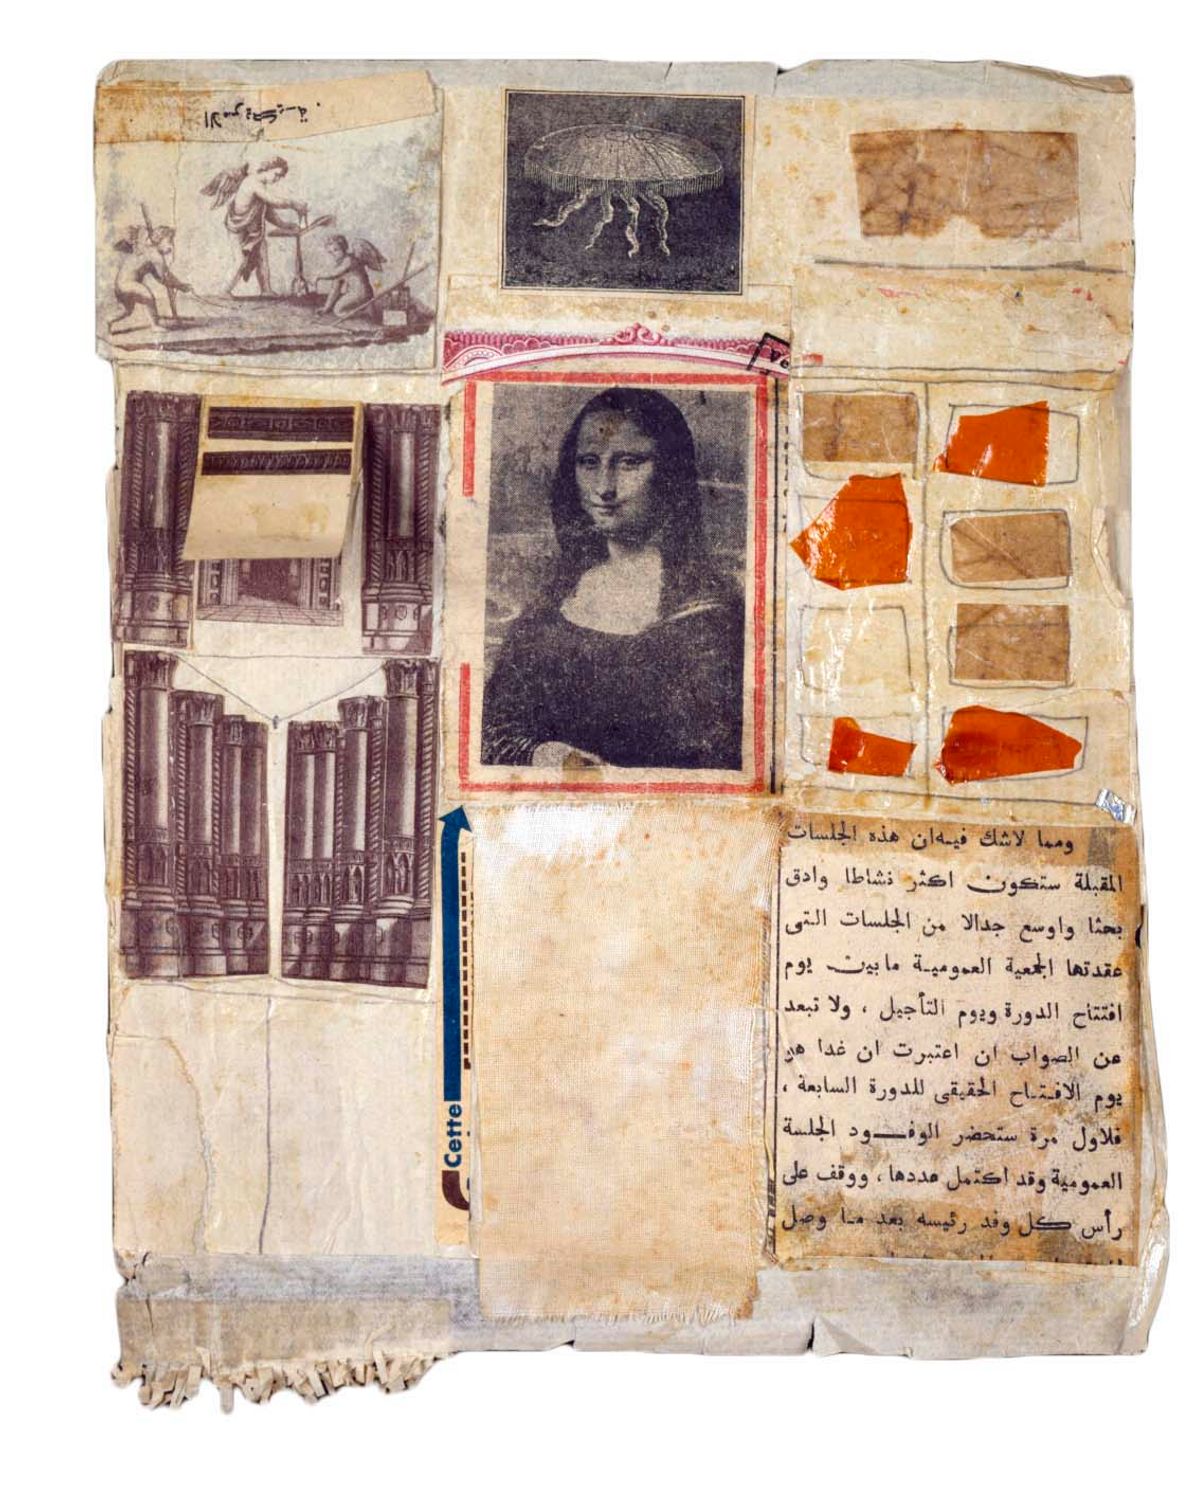 الامريكية.
Ve
Cette
ومما لاشك فيه ان هذه الجلسات
المقبلة ستكون اكثر نشاطا وادق
بحثا واوسع جدالا من الجلسات التى
عقدتها الجمعية العمومية مابين يوم
افتتاح الدورة ويوم التأجيل ، ولا نبعد
عن الصواب ان اعتبرت ان غدا هو
يوم الافتتاح الحقيقى للدورة السابعة ،
فلاول مرة ستحضر الوفود الجلسة
العمومية وقد اكتمل عددها ، ووقف على
رأس كل وفد رئيسه بعد ما وصل